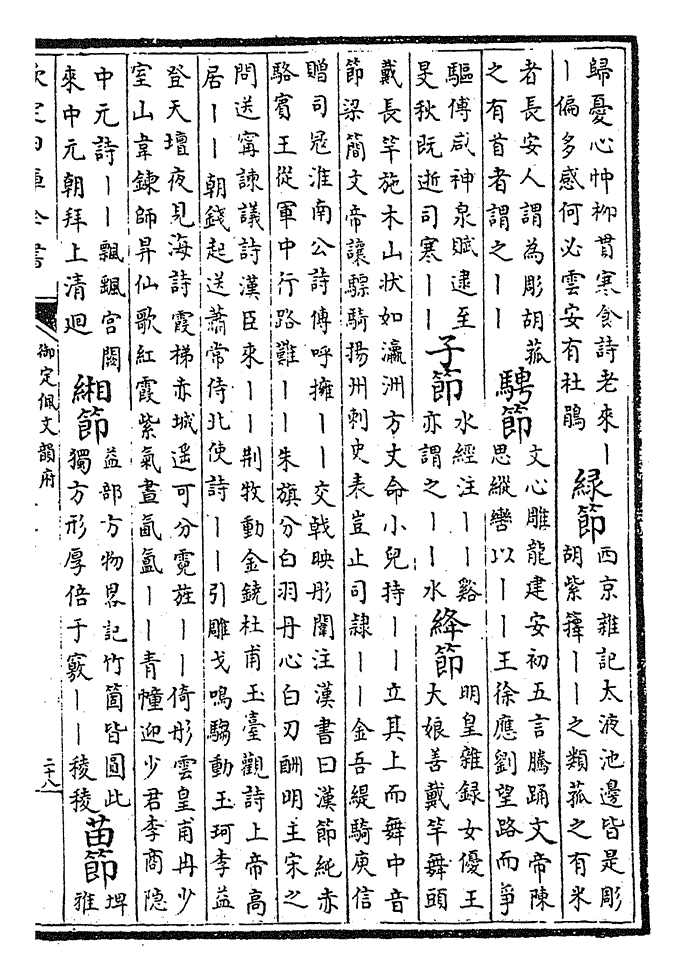 歸憂心忡栁貫寒食詩老來丨
丨偏多感何必雲安有杜鵑
緑節
西京雜記太液池邊皆是彫
胡紫籜丨丨之類菰之有米
者長安人謂為彫胡菰
之有首者謂之丨丨
騁節
文心雕龍建安初五言騰踊文帝陳
思縱轡以丨丨王徐應劉望路而爭
驅傅咸神泉賦逮至
旻秋既逝司寒丨丨
子節
水經注丨丨谿
亦謂之丨丨水
絳節
明皇雜録女優王
大娘善戴竿舞頭
戴長竿施木山狀如瀛洲方丈命小兒持丨丨立其上而舞中音
節梁簡文帝讓驃騎揚州刺史表豈止司隷丨丨金吾緹騎庾信
贈司冦淮南公詩傳呼擁丨丨交戟映彤闈注漢書曰漢節純赤
駱賔王從軍中行路難丨丨朱旗分白羽丹心白刃酬明主宋之
問送寗諫議詩漢臣來丨丨荆牧動金鐃杜甫玉臺觀詩上帝高
居丨丨朝錢起送蕭常侍北使詩丨丨引雕戈鳴騶動玉珂李益
登天壇夜見海詩霞梯赤城遥可分霓旌丨丨倚彤雲皇甫冉少
室山韋鍊師昇仙歌紅霞紫氣晝氤氲丨丨青幢迎少君李商隠
中元詩丨丨飄颻宫闕
來中元朝拜上清廻
緗節
益部方物畧記竹箇皆圓此
獨方形厚倍于竅丨丨稜稜
苗節
埤
雅
欽定四庫全書
御定佩文韻府
二十八